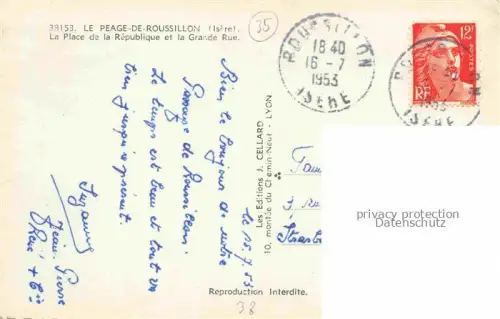 38153. LE PEAGE-DE-ROUSSILLON (Isère).
La Place de la République et la Grande Rue.
35
ROUSSILLON
18 40
16 - 7
1953
ISÈRE
12F
POSTES
RF
1953
ISERE
le 15.7.53
Bien le bonjour de notre
Passage de Roussillon.
Le temps est beau et tout va
bien jusqu'à présent.
Jean-Pierre
René + Cie
Les Editions J. CELLARD
10, montée du Chemin-Neuf - LYON
Fam
3, ru
Strasb
privacy protection
Datenschutz
Reproduction Interdite.
38